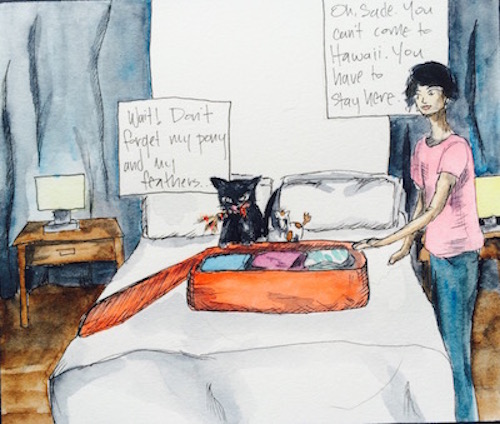 Wait! Don't
forget my pony
and my
feathers...
Oh, Sade. You
can't come to
Hawaii. You
have to
stay here.